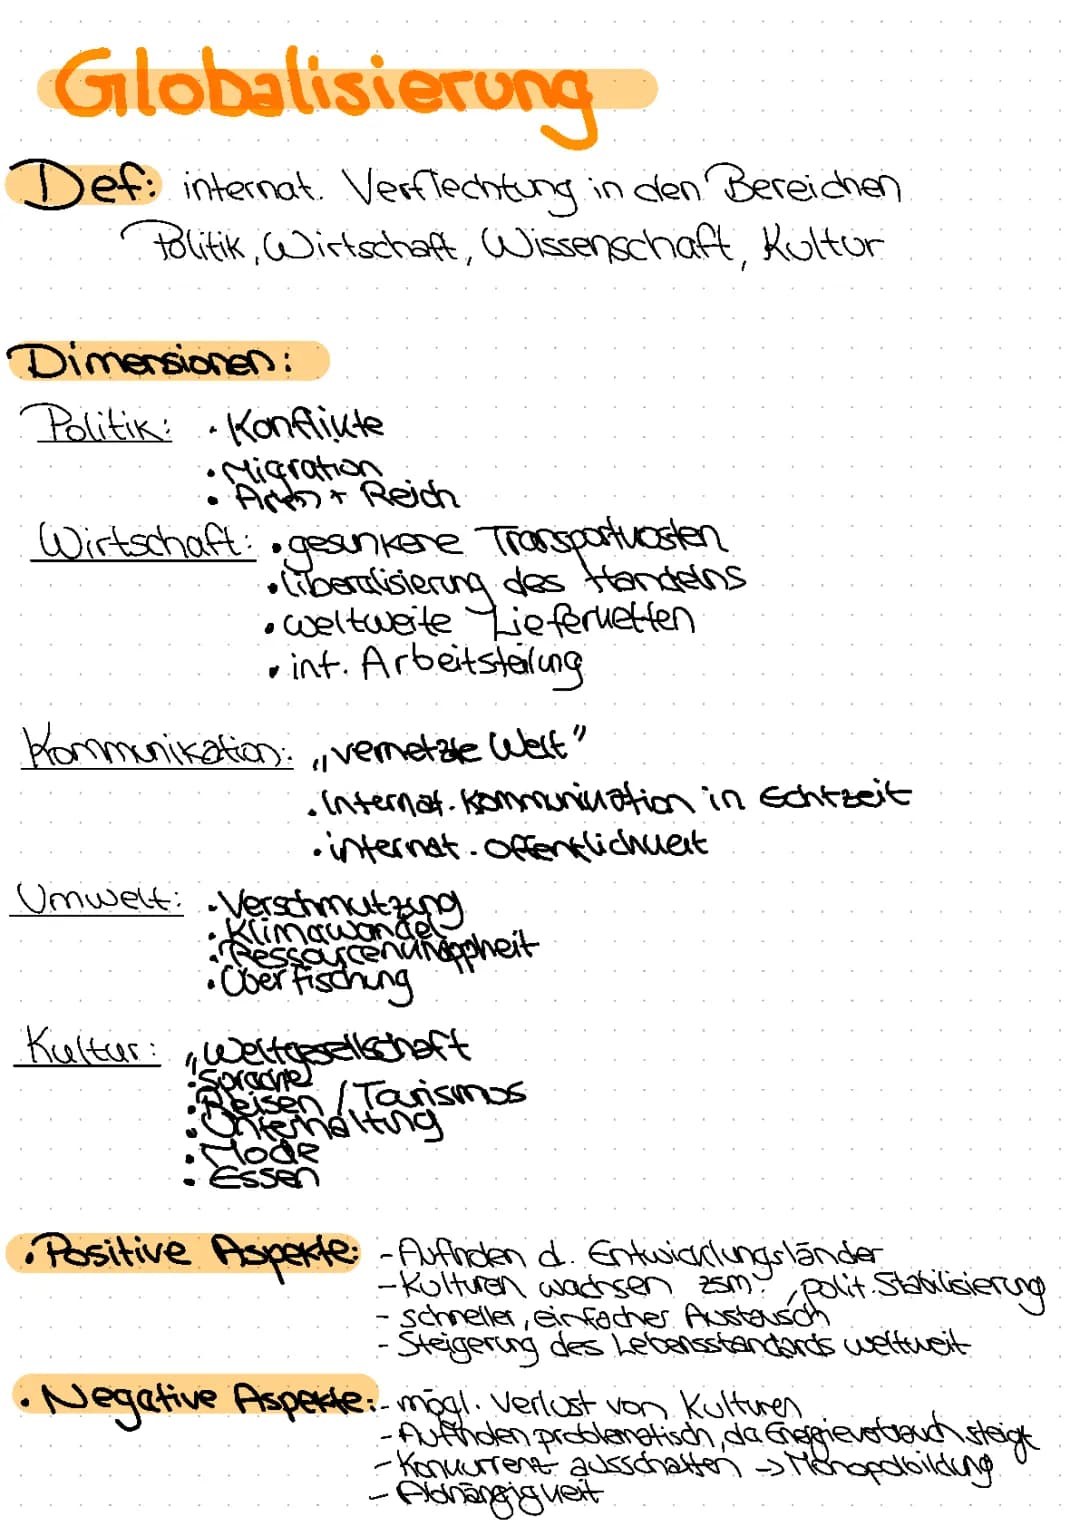 Globalisierung
Def: internat. Verflechtung in den Bereichen
Politik, Wirtschaft, Wissenschaft, Kultur
Dimensionen:
Politik: • Konflikte
• Migration
• Arm + Reich
Wirtschaft: • gesunkene Transportkosten
• Liberalisierung des Handelns
• weltweite Lieferketten
• int. Arbeitsteilung
Kommunikation: „vernetzte Welt"
• Internat. Kommunikation in Echtzeit
• internat. Öffentlichkeit
Umwelt: • Verschmutzung
• Klimawandel
• Ressourcenknappheit
• Überfischung
Kultur: „Weltgesellschaft
• Sprache
• Reisen / Tourismus
• Unterhaltung
• Mode
• Essen
• Positive Aspekte: - Aufholen d. Entwicklungsländer
- Kulturen wachsen zsm. , polit. Stabilisierung
- schneller, einfacher Austausch
- Steigerung des Lebensstandards weltweit
• Negative Aspekte: - mögl. Verlust von Kulturen
- Aufholen problematisch, da Energieverbrauch steigt
- Konkurrent ausschalten -> Monopolbildung
- Abhängigkeit